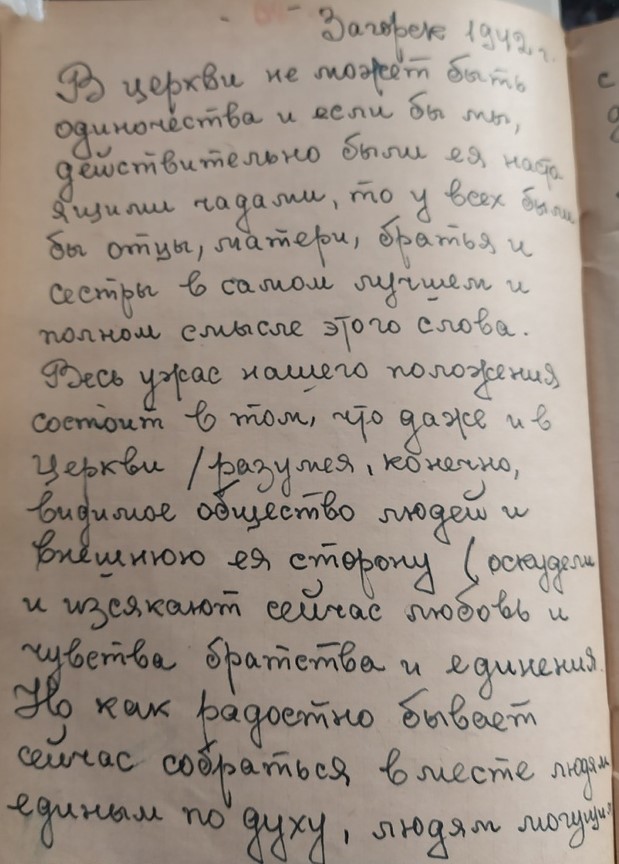 Загорск 1942 г.
В церкви не может быть
одиночества и если бы мы,
действительно были ея наста
ящими чадами, то у всех были
бы отцы, матери, братья и
сестры в самом лучшем и
полном смысле этого слова.
Весь ужас нашего положения
состоит в том, что даже и в
церкви /разумея, конечно,
видимое общество людей и
внешнюю ея сторону ( оскудели
и изсякают сейчас любовь и
чувства братства и единения.
Но как радостно бывает
сейчас собраться вместе людям
единым по духу, людям могущим